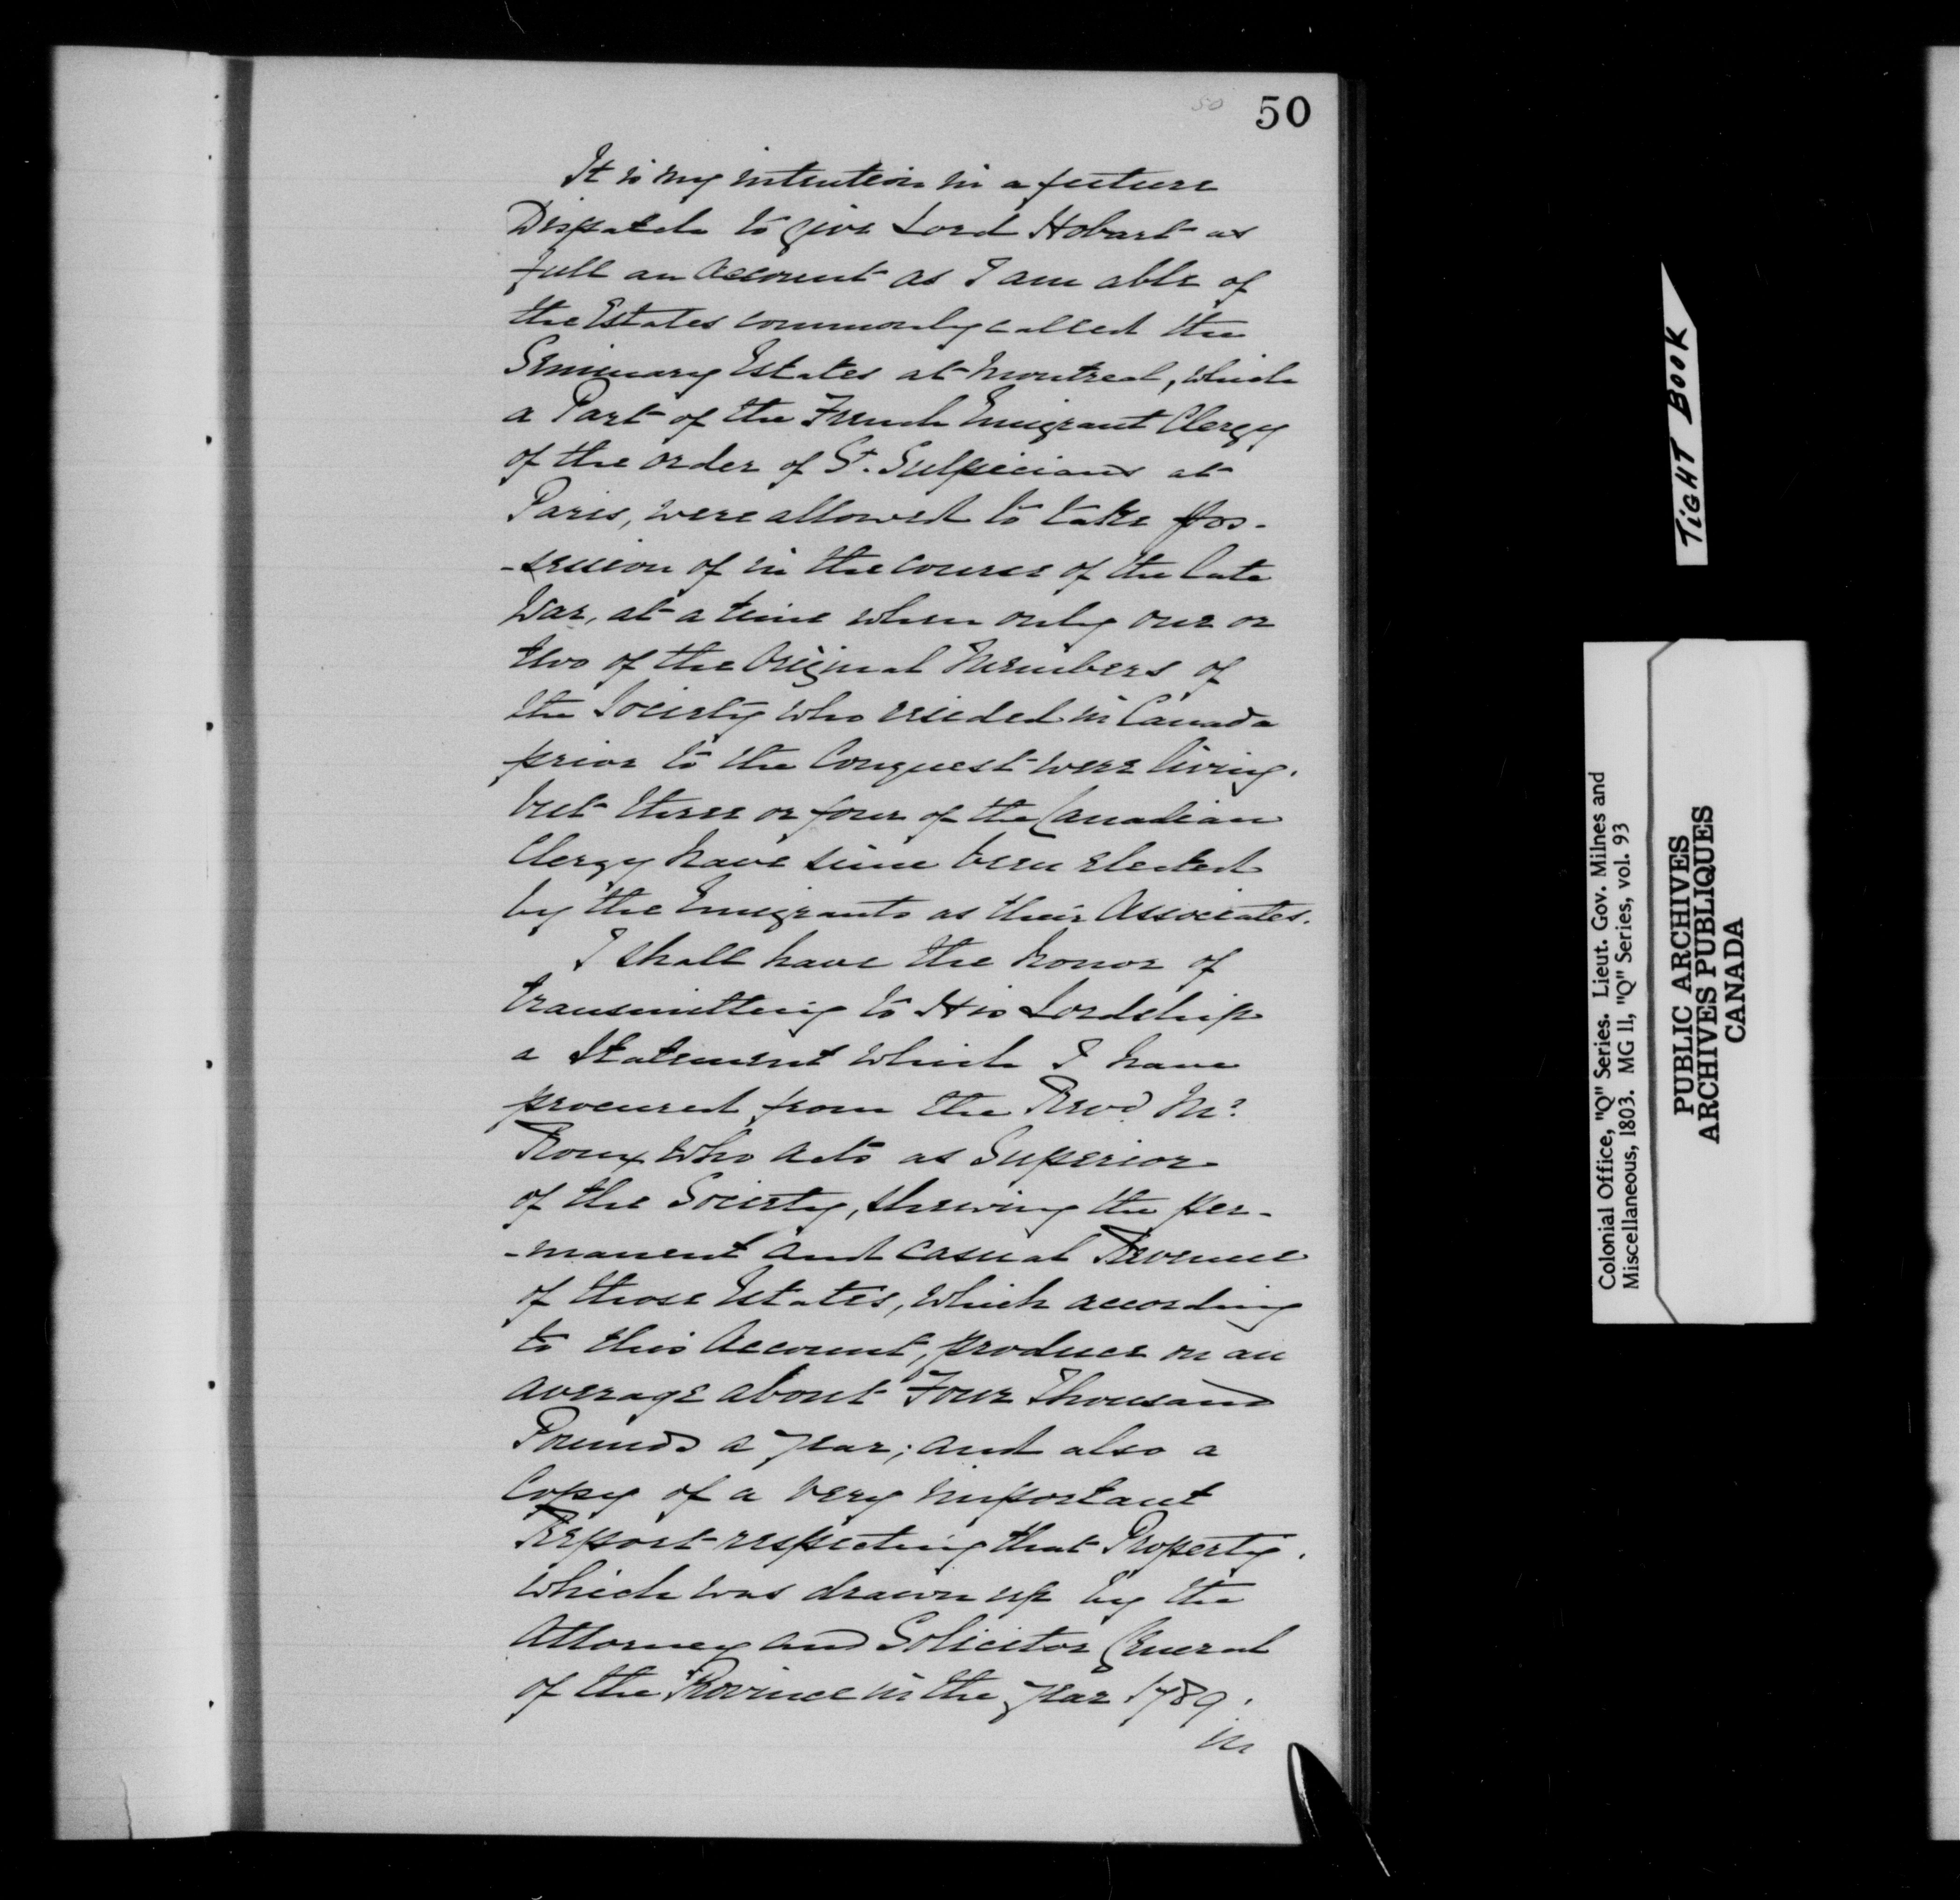 50
50
It is my intention in a future
Dispatch to give Lord Hobart as
full an account as I am able of
the Estates commonly called the
Seminary Estates at Montreal, which
a Part of the French Emigrant Clergy
of the order of St. Sulpicians at
Paris, were allowed to take pos-
-session of in the course of the late
War, at a time when only one or
two of the Original Members of
the Society who resided in Canada
prior to the Conquest were living.
but three or four of the Canadian
Clergy have since been elected
by the Emigrants as their Associates.
I shall have the honor of
transmitting to His Lordship
a Statement which I have
procured from the Revd. Mr.
Roux who acts as Superior
of the Society, shewing the per-
-manent and casual Revenue
of those Estates, which according
to this Account, produce on an
average about Four Thousand
Pounds a year; and also a
Copy of a very important
Report respecting that Property.
which was drawn up by the
Attorney and Solicitor General
of the Province in the year 1789.
in
TIGHT BOOK
Colonial Office, "Q" Series. Lieut. Gov. Milnes and
Miscellaneous, 1803. MG 11, "Q" Series, vol. 93
PUBLIC ARCHIVES
ARCHIVES PUBLIQUES
CANADA